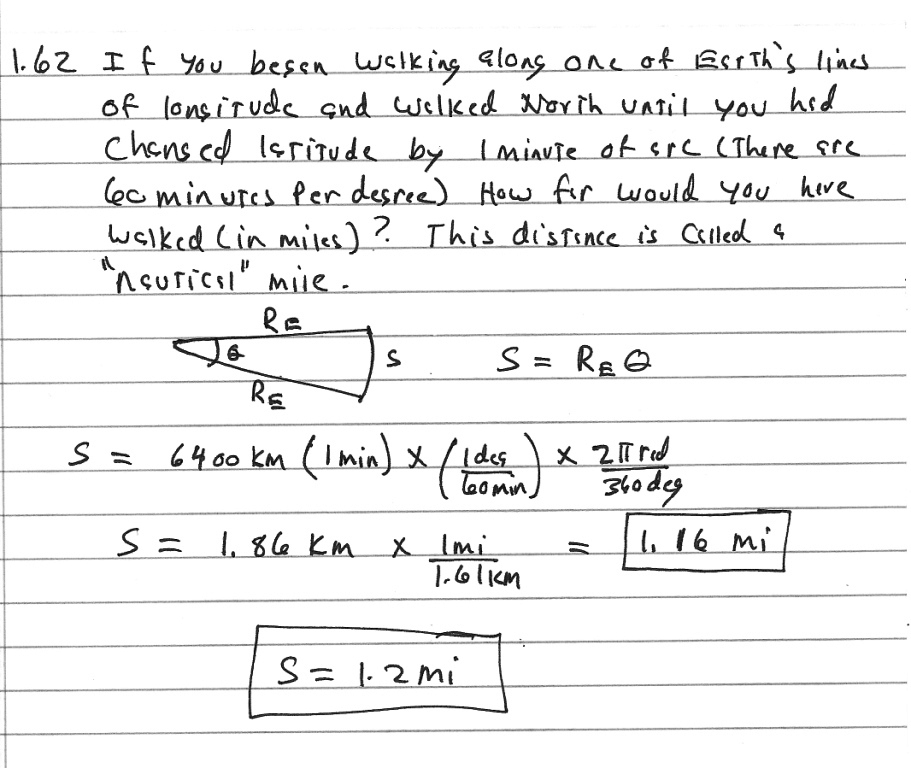 1.62 If you began walking along one of Earth's lines
of longitude and walked North until you had
Changed latitude by 1 minute of arc (There are
60 minutes Per degree) How far would you have
walked (in miles)? This distance is Called a
"nautical" mile.
R_E
θ S S = R_E θ
R_E
S = 6400 km (1 min) × (1 deg / 60 min) × 2π rad / 360 deg
S = 1.86 km × 1 mi / 1.61 km = 1.16 mi
S = 1.2 mi